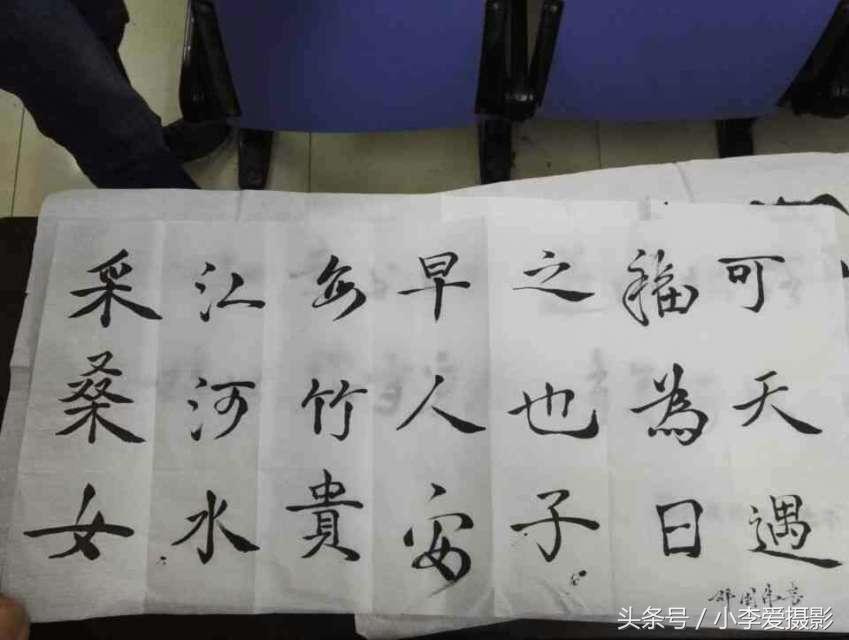 采桑女
江河水
每竹貴
早人安
之也子
福為日
可天遇
头条号 / 小李爱摄影